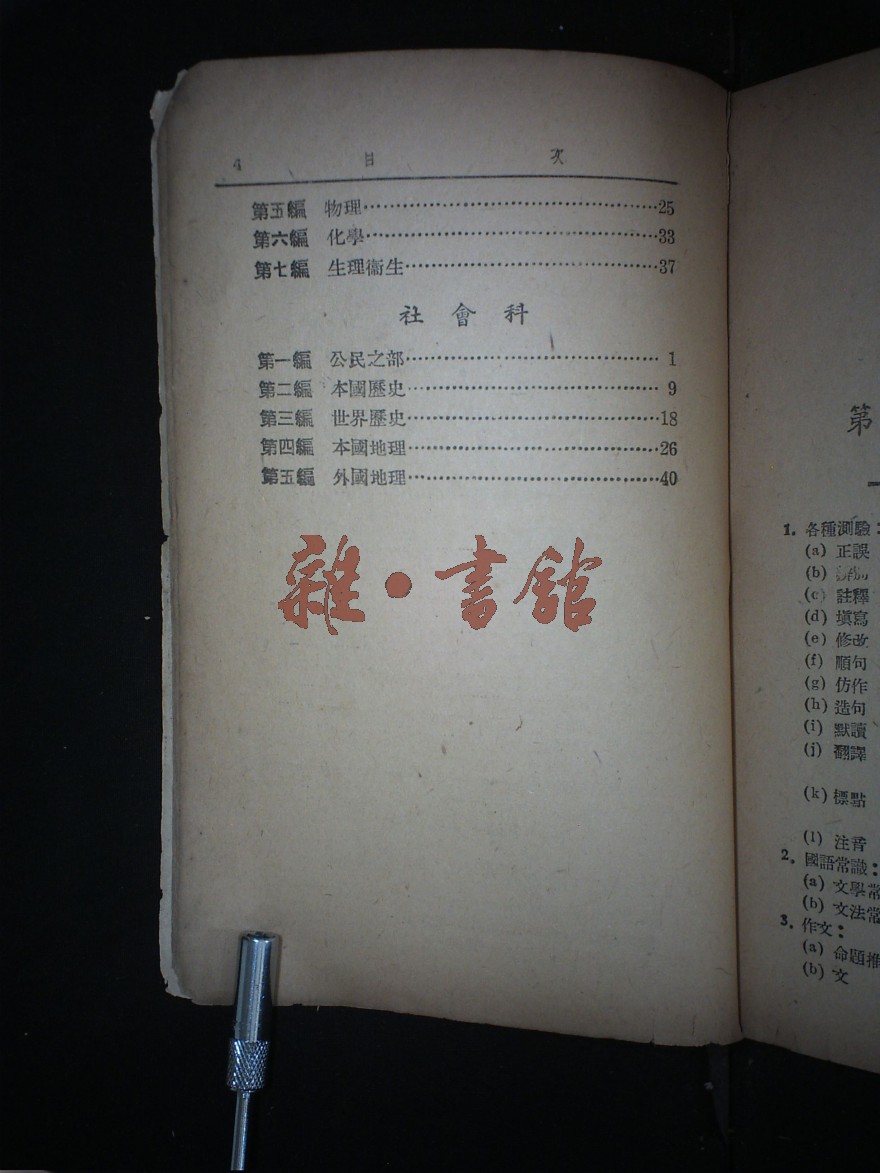 4 目 次
第五編 物理……………………………………25
第六編 化學……………………………………33
第七編 生理衞生………………………………37
社會科
第一編 公民之部……………………………… 1
第二編 本國歷史……………………………… 9
第三編 世界歷史………………………………18
第四編 本國地理………………………………26
第五編 外國地理………………………………40
雜·書館
第
1. 各種測驗：
(a) 正誤
(b)
(c) 註釋
(d) 填寫
(e) 修改
(f) 順句
(g) 仿作
(h) 造句
(i) 默讀
(j) 翻譯
(k) 標點
(l) 注音
2. 國語常識：
(a) 文學常
(b) 文法常
3. 作文：
(a) 命題推
(b) 文